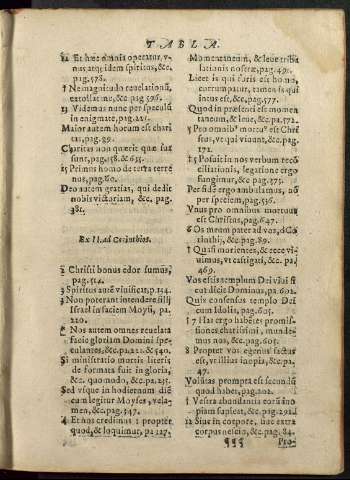 TABLA.
12 Et hæc omnia operatur, v-
nus atq; idem spiritus, &c.
pag. 578.
† Ne magnitudo reuelationũ,
extollat me, &c. pag. 596.
13 Videmus nunc per speculũ
in enigmate, pag. 221.
Maior autem horum est chari
tas, pag. 89.
Charitas non querit quæ sua
sunt, pag. 158. & 655.
15 Primus homo de terra terre
nus, pag. 80.
Deo autem gratias, qui dedit
nobis victoriam, &c. pag.
381.
Ex II. ad Corinthios.
2 Christi bonus odor sumus,
pag. 514.
3 Spiritus autẽ viuificat, p. 154.
3 Non poterant intendere filij
Israel in faciem Moysi, pa.
220.
Nos autem omnes reuelata
facie gloriam Domini spe-
culantes, &c. pa. 221. & 540.
Si ministratio mortis literis
de formata fuit in gloria,
&c. quomodo, &c. pa. 215.
Sed vsque in hodiernum diẽ
cum legitur Moyses, vela-
men, &c. pag. 547.
4 Et nos credimus: propter
quod, & loquimur, pa. 127.
Momentaneum, & leue tribu
lationis nostræ, pag. 491.
Licet is qui foris est homo,
corrumpatur, tamen is qui
intus est, &c. pag. 577.
Quod in præsenti est momen
taneum, & leue, &c. pa. 572.
5 Pro omnibꝰ mortuꝰ est Chri
stus, vt qui viuunt, &c. pag.
172.
15 Posuit in nos verbum reco
ciliationis, legatione ergo
fungimur, &c. pag. 375.
Per fidẽ ergo ambulamus, nõ
per speciem, pag. 536.
Vnus pro omnibus mortuus
est Christus, pag. 647.
6 Os meum patet ad vos, ô Co
rinthij, &c. pag. 89.
† Quasi morientes, & ecce vi-
uimus, vt castigati, &c. pa.
469.
Vos estis templum Dei viui si
cut dicit Dominus, pa. 602.
Quis consensus templo Dei
cum Idolis, pag. 603.
17 Has ergo habẽtes promis-
siones charissimi, munde-
mus nos, &c. pag. 605.
8 Propter vos egenus factus
est, vt illius inopia, &c. pa.
47.
Voluntas prompta est secundũ
quod habet, pag. 202.
† Vestra abundantia eorũ ino
piam supleat, &c. pag. 292.
12 Siue in corpore, siue extra
corpus nescio, &c. pag. 84.
Pro-